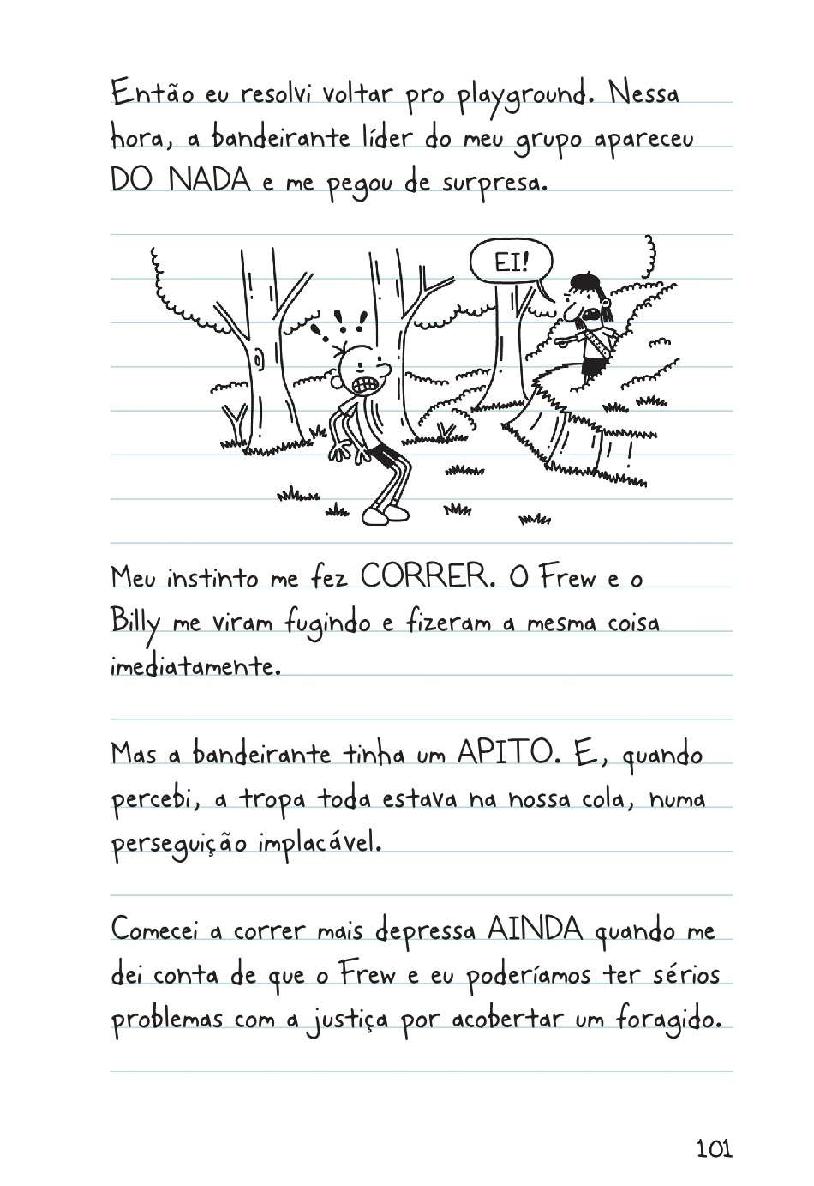 Então eu resolvi voltar pro playground. Nessa
hora, a bandeirante líder do meu grupo apareceu
DO NADA e me pegou de surpresa.
EI!
Meu instinto me fez CORRER. O Frew e o
Billy me viram fugindo e fizeram a mesma coisa
imediatamente.
Mas a bandeirante tinha um APITO. E, quando
percebi, a tropa toda estava na nossa cola, numa
perseguição implacável.
Comecei a correr mais depressa AINDA quando me
dei conta de que o Frew e eu poderíamos ter sérios
problemas com a justiça por acobertar um foragido.
101